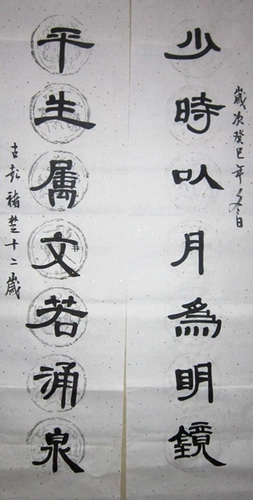 歲次癸巳年冬日
少時以月為明鏡
平生属文若涌泉
古彭褚十二歲